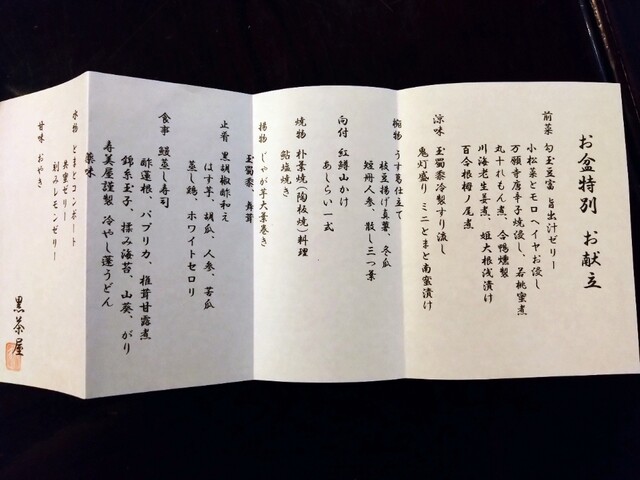 お盆特別 お献立
前菜 勾玉豆富 旨出汁ゼリー
小松菜とモロヘイヤお浸し
万願寺唐辛子焼浸し、若桃蜜煮
丸十れもん煮、合鴨燻製
川海老生姜煮、姫大根浅漬け
百合根梅ノ尾煮
涼味 玉蜀黍冷製すり流し
鬼灯盛り ミニとまと南蜜漬け
椀物 うす葛仕立て
枝豆揚げ真薯、冬瓜
短冊人参、散し三つ葉
向付 紅鱒山かけ
あしらい一式
焼物 朴葉焼(陶板焼)料理
鮎塩焼き
揚物 じゃが芋大葉巻き
玉蜀黍 舞茸
止肴 黒胡椒酢和え
はす芋、胡瓜、人参、苦瓜
蒸し鶏、ホワイトセロリ
食事 鰻蒸し寿司
酢蓮根、パプリカ、椎茸甘露煮
錦糸玉子、揉み海苔、山葵、がり
寿美屋謹製 冷やし蓮うどん
薬味
水物 とまとコンポート
共蜜ゼリー
刻みレモンゼリー
甘味 おやき
黒茶屋